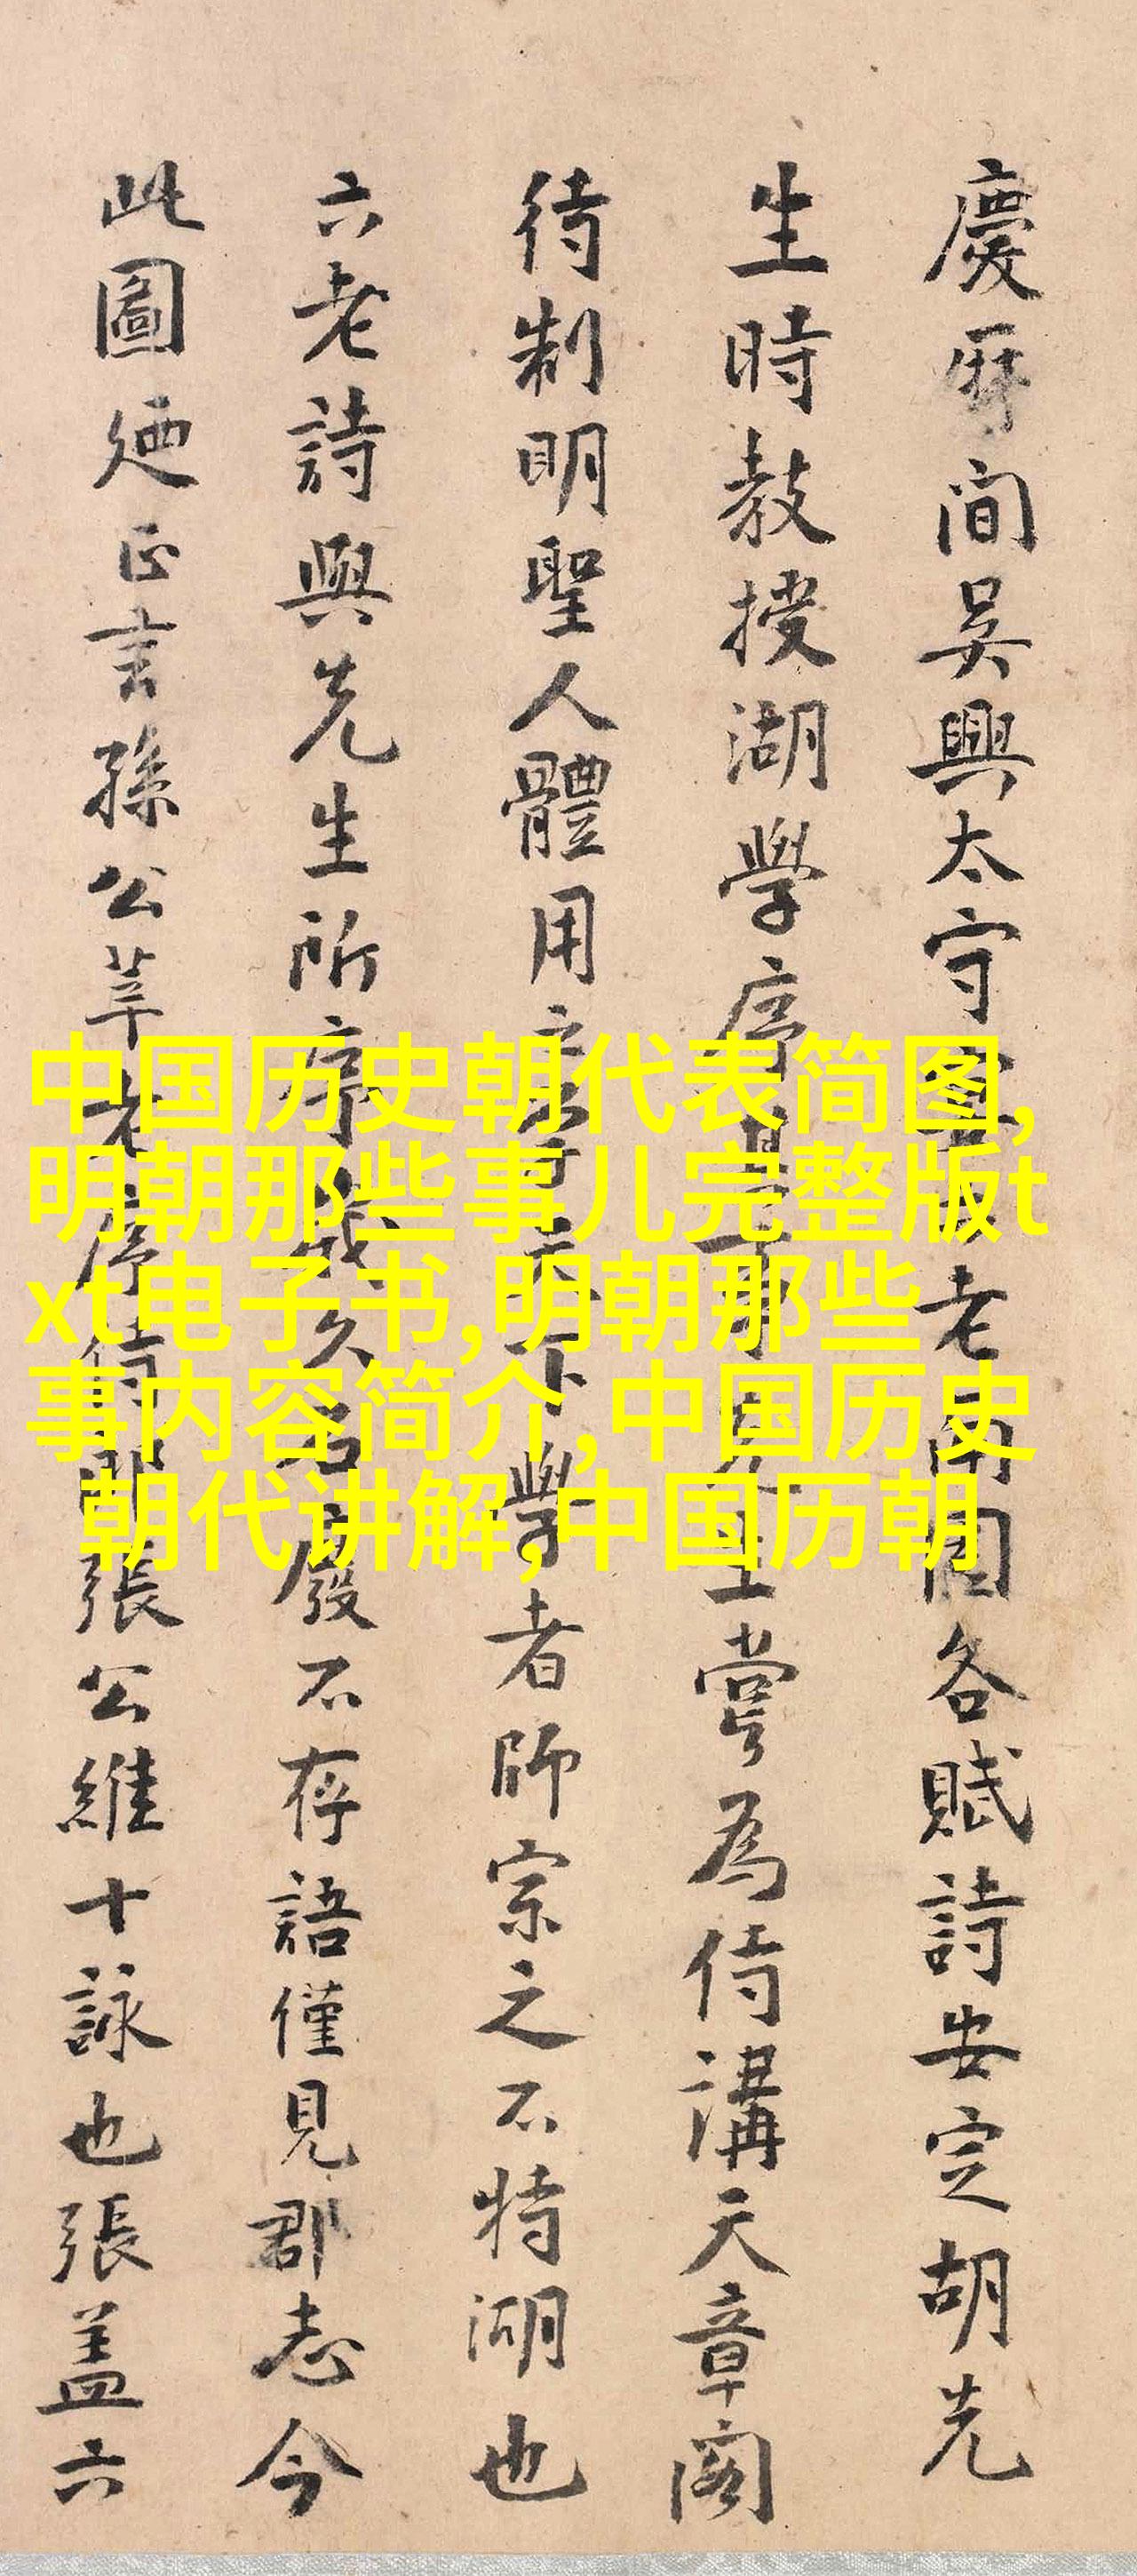 慶厤間吳興太守宴老南園各賦詩安定胡先
生時教授湖學序其事先生嘗為侍講天章閣
待制明聖人體用之學天下學者師宗之不特湖也
六老詩與先生所序歲久石廢不存語僅見郡志今
此圖廼正言孫公莘老序侍郎張公維十詠也張蓋六
中国历史朝代表简图,
明朝那些事儿完整版t
xt电子书,明朝那些
事内容简介,中国历史
朝代讲解,中国历朝